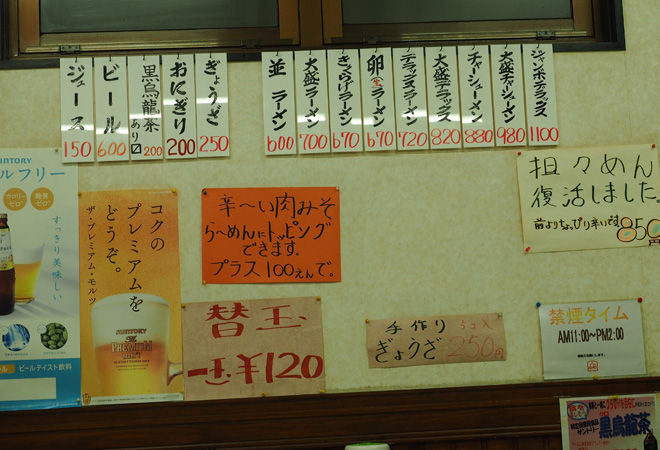 ジュース 150
ビール 600
黒烏龍茶 あり〼 200
おにぎり 200
ぎょうざ 250
並ラーメン 600
大盛ラーメン 700
きくらげラーメン 670
卵ラーメン 670
デラックスラーメン 720
大盛デラックス 820
チャーシューメン 880
大盛チャーシューメン 980
ジャンボデラックス 1100
SUNTORY
ルフリー
カロリーゼロ
糖質ゼロ
すっきり美味しい
ビールテイスト飲料
コクの
プレミアムを
どうぞ。
ザ・プレミアム・モルツ
SUNTORY
THE
PREMIUM
MALT'S
辛〜い肉みそ
ら〜めんにトッピング
できます。
プラス100えんで。
替玉
一玉¥120
手作り 5コ入
ぎょうざ 250円
担々めん
復活しました。
前よりちょっぴり辛いです 850円
禁煙タイム
AM11:00〜PM2:00
サントリー
黒烏龍茶